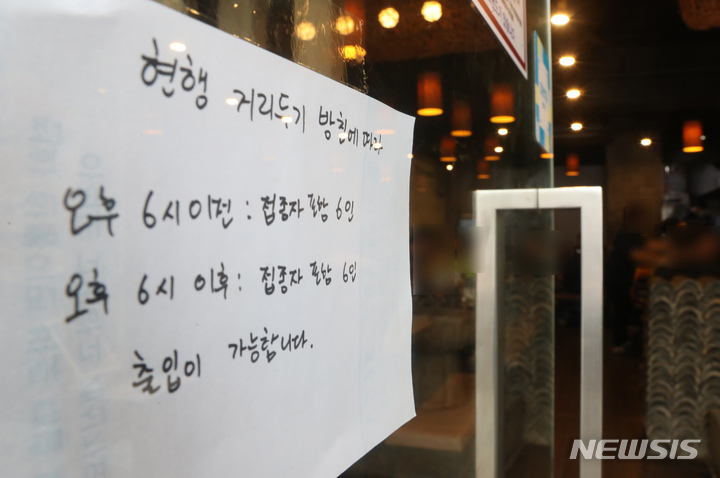 현행 거리두기 방침에 따라
오후 6시 이전 : 접종자 포함 6인
오후 6시 이후 : 접종자 포함 6인
출입이 가능합니다.
NEWSIS